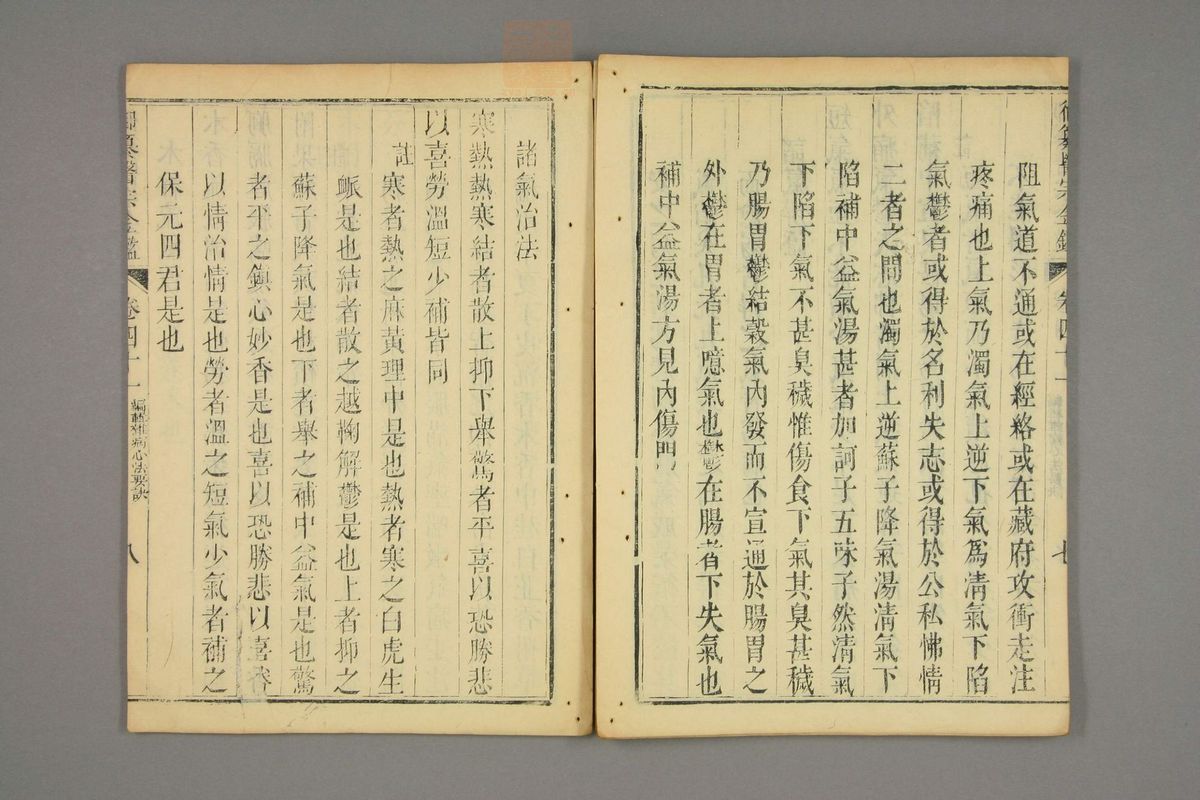 御纂醫宗金鑑 卷四十一 七
阻氣道不通或在經絡或在藏府攻衝走注
疼痛也上氣乃濁氣上逆下氣爲清氣下陷
氣鬱者或得於名利失志或得於公私怫情
二者之間也濁氣上逆蘇子降氣湯清氣下
陷補中益氣湯甚者加訶子五味子然清氣
下陷下氣不甚臭穢惟傷食下氣其臭甚穢
乃腸胃鬱結穀氣內發而不宣通於腸胃之
外鬱在胃者上噫氣也鬱在腸者下失氣也
補中益氣湯方見內傷門
諸氣治法
寒熱熱寒結者散上抑下舉驚者平喜以恐勝悲
以喜勞溫短少補皆同
註
寒者熱之麻黃理中是也熱者寒之白虎生
脈是也結者散之越鞠解鬱是也上者抑之
蘇子降氣是也下者舉之補中益氣是也驚
者平之鎮心妙香是也喜以恐勝悲以喜勝
以情治情是也勞者溫之短氣少氣者補之
保元四君是也
御纂醫宗金鑑 卷四十一 編輯雜病心法要訣 八